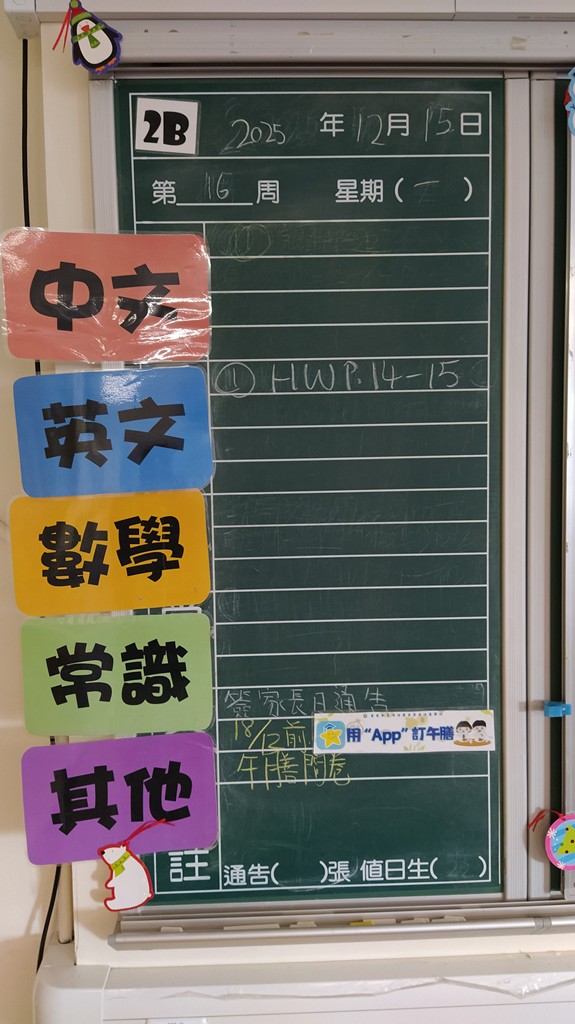 2B 2025 年 12 月 15 日
第 16 周 星期( 一 )
中文
英文 ⑪ HW P.14-15
數學
常識
簽家長日通告
18/12前
用 “App” 訂午膳
午膳問卷
其他
註 通告( )張 值日生( )